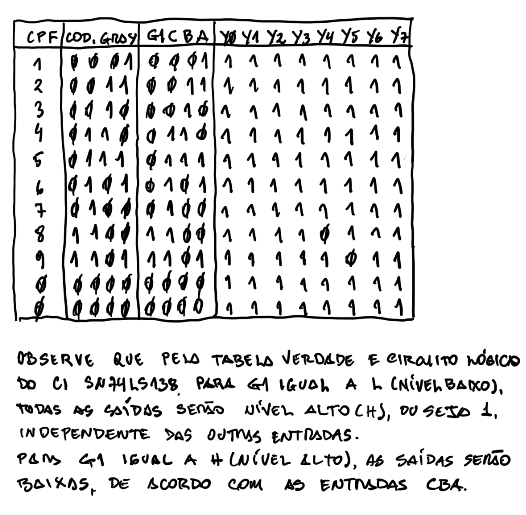 CPF COD. GRAY G1 C B A Y0 Y1 Y2 Y3 Y4 Y5 Y6 Y7
1 0 0 0 1 0 0 0 1 1 1 1 1 1 1 1 1
2 0 0 1 1 0 0 1 1 1 1 1 1 1 1 1 1
3 0 0 1 0 0 0 1 0 1 1 1 1 1 1 1 1
4 0 1 1 0 0 1 1 0 1 1 1 1 1 1 1 1
5 0 1 1 1 0 1 1 1 1 1 1 1 1 1 1 1
6 0 1 0 1 0 1 0 1 1 1 1 1 1 1 1 1
7 0 1 0 0 0 1 0 0 1 1 1 1 1 1 1 1
8 1 1 0 0 1 1 0 0 1 1 1 1 0 1 1 1
9 1 1 0 1 1 1 0 1 1 1 1 1 1 0 1 1
0 0 0 0 0 0 0 0 0 1 1 1 1 1 1 1 1
0 0 0 0 0 0 0 0 0 1 1 1 1 1 1 1 1
OBSERVE QUE PELA TABELA VERDADE E CIRCUITO LÓGICO
DO CI SN74LS138, PARA G1 IGUAL A L (NÍVEL BAIXO),
TODAS AS SAÍDAS SERÃO NÍVEL ALTO (H), OU SEJA 1,
INDEPENDENTE DAS OUTRAS ENTRADAS.
PARA G1 IGUAL A H (NÍVEL ALTO), AS SAÍDAS SERÃO
BAIXAS, DE ACORDO COM AS ENTRADAS CBA.